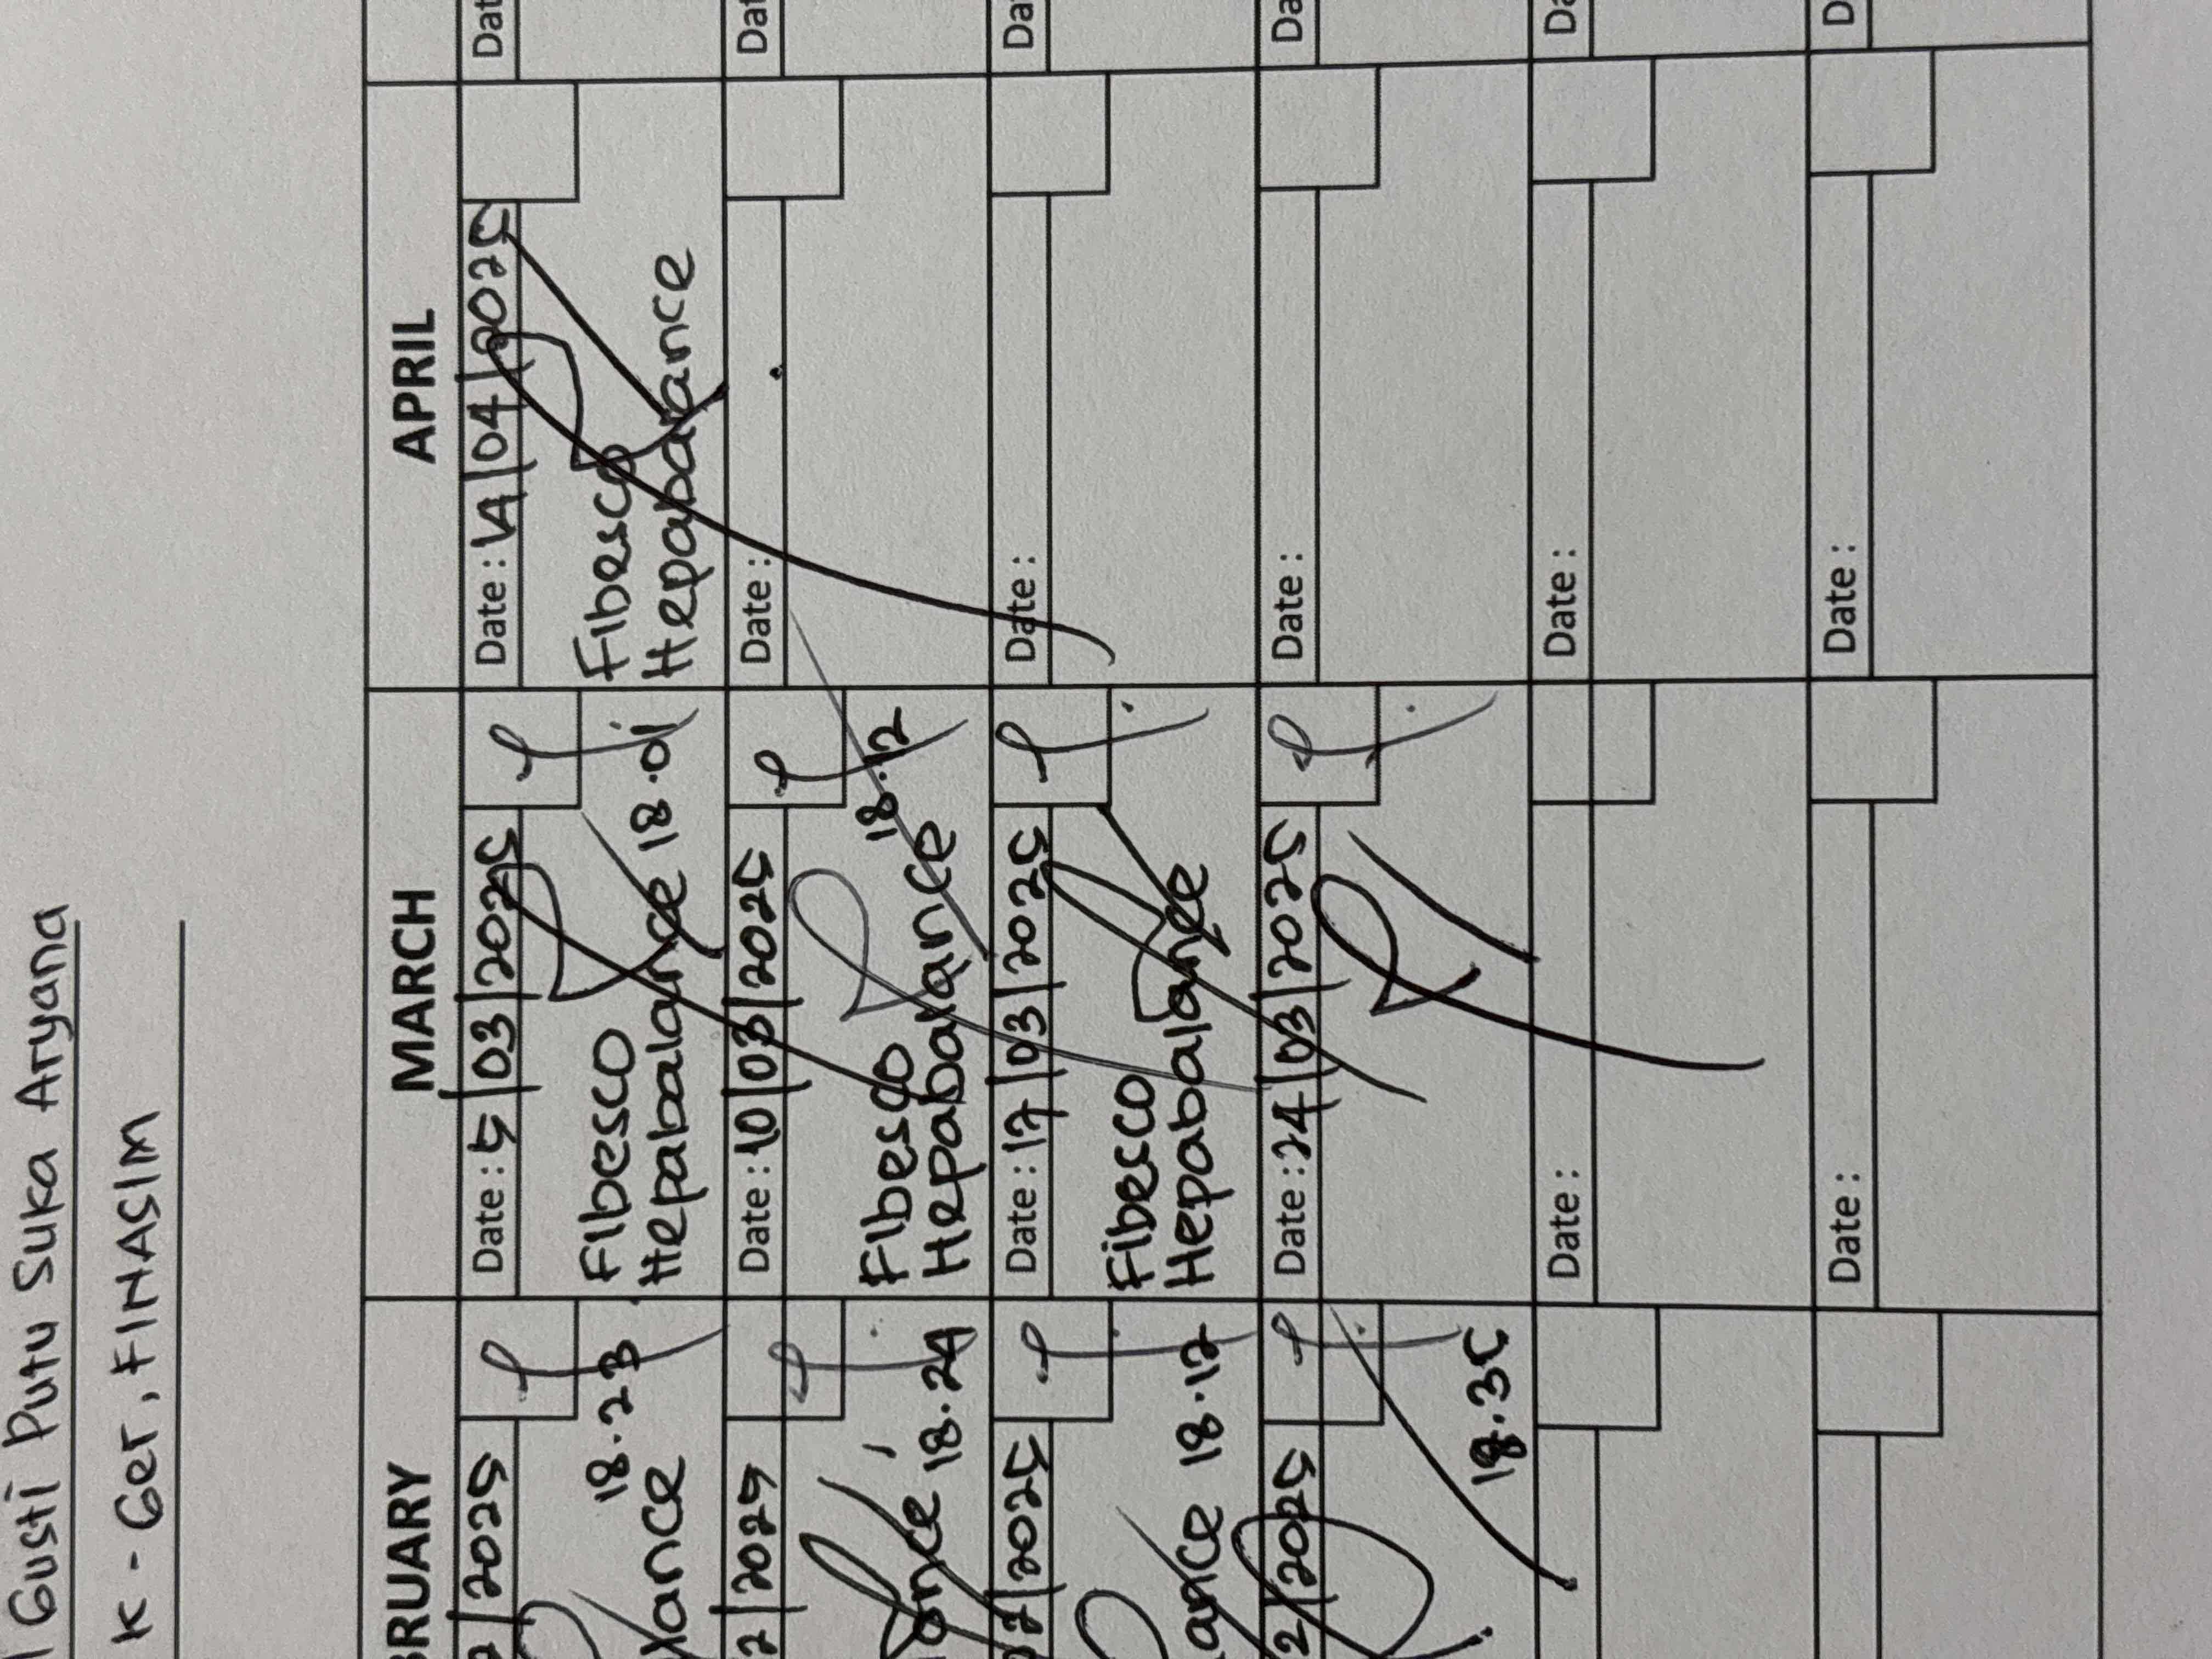 I Gusti Putu Suka Aryana
K - Ger, FINASIM
BRUARY
2 | 2025
18.23
lance
2 | 2025
ance 18.24
02 | 2025
ance 18.17
2 | 2025
18.35
MARCH
Date : 5 | 03 | 2025
Fibesco
Hepabalance 18.01
Date : 10 | 03 | 2025
18.12
Fibesco
Hepabalance
Date : 17 | 03 | 2025
Fibesco
Hepabalance
Date : 24 | 03 | 2025
Date :
Date :
APRIL
Date : 14 | 04 | 2025
Fibesco
Hepabalance
Date :
Date :
Date :
Date :
Date :
Dat
Dat
Da
Da
Da
D